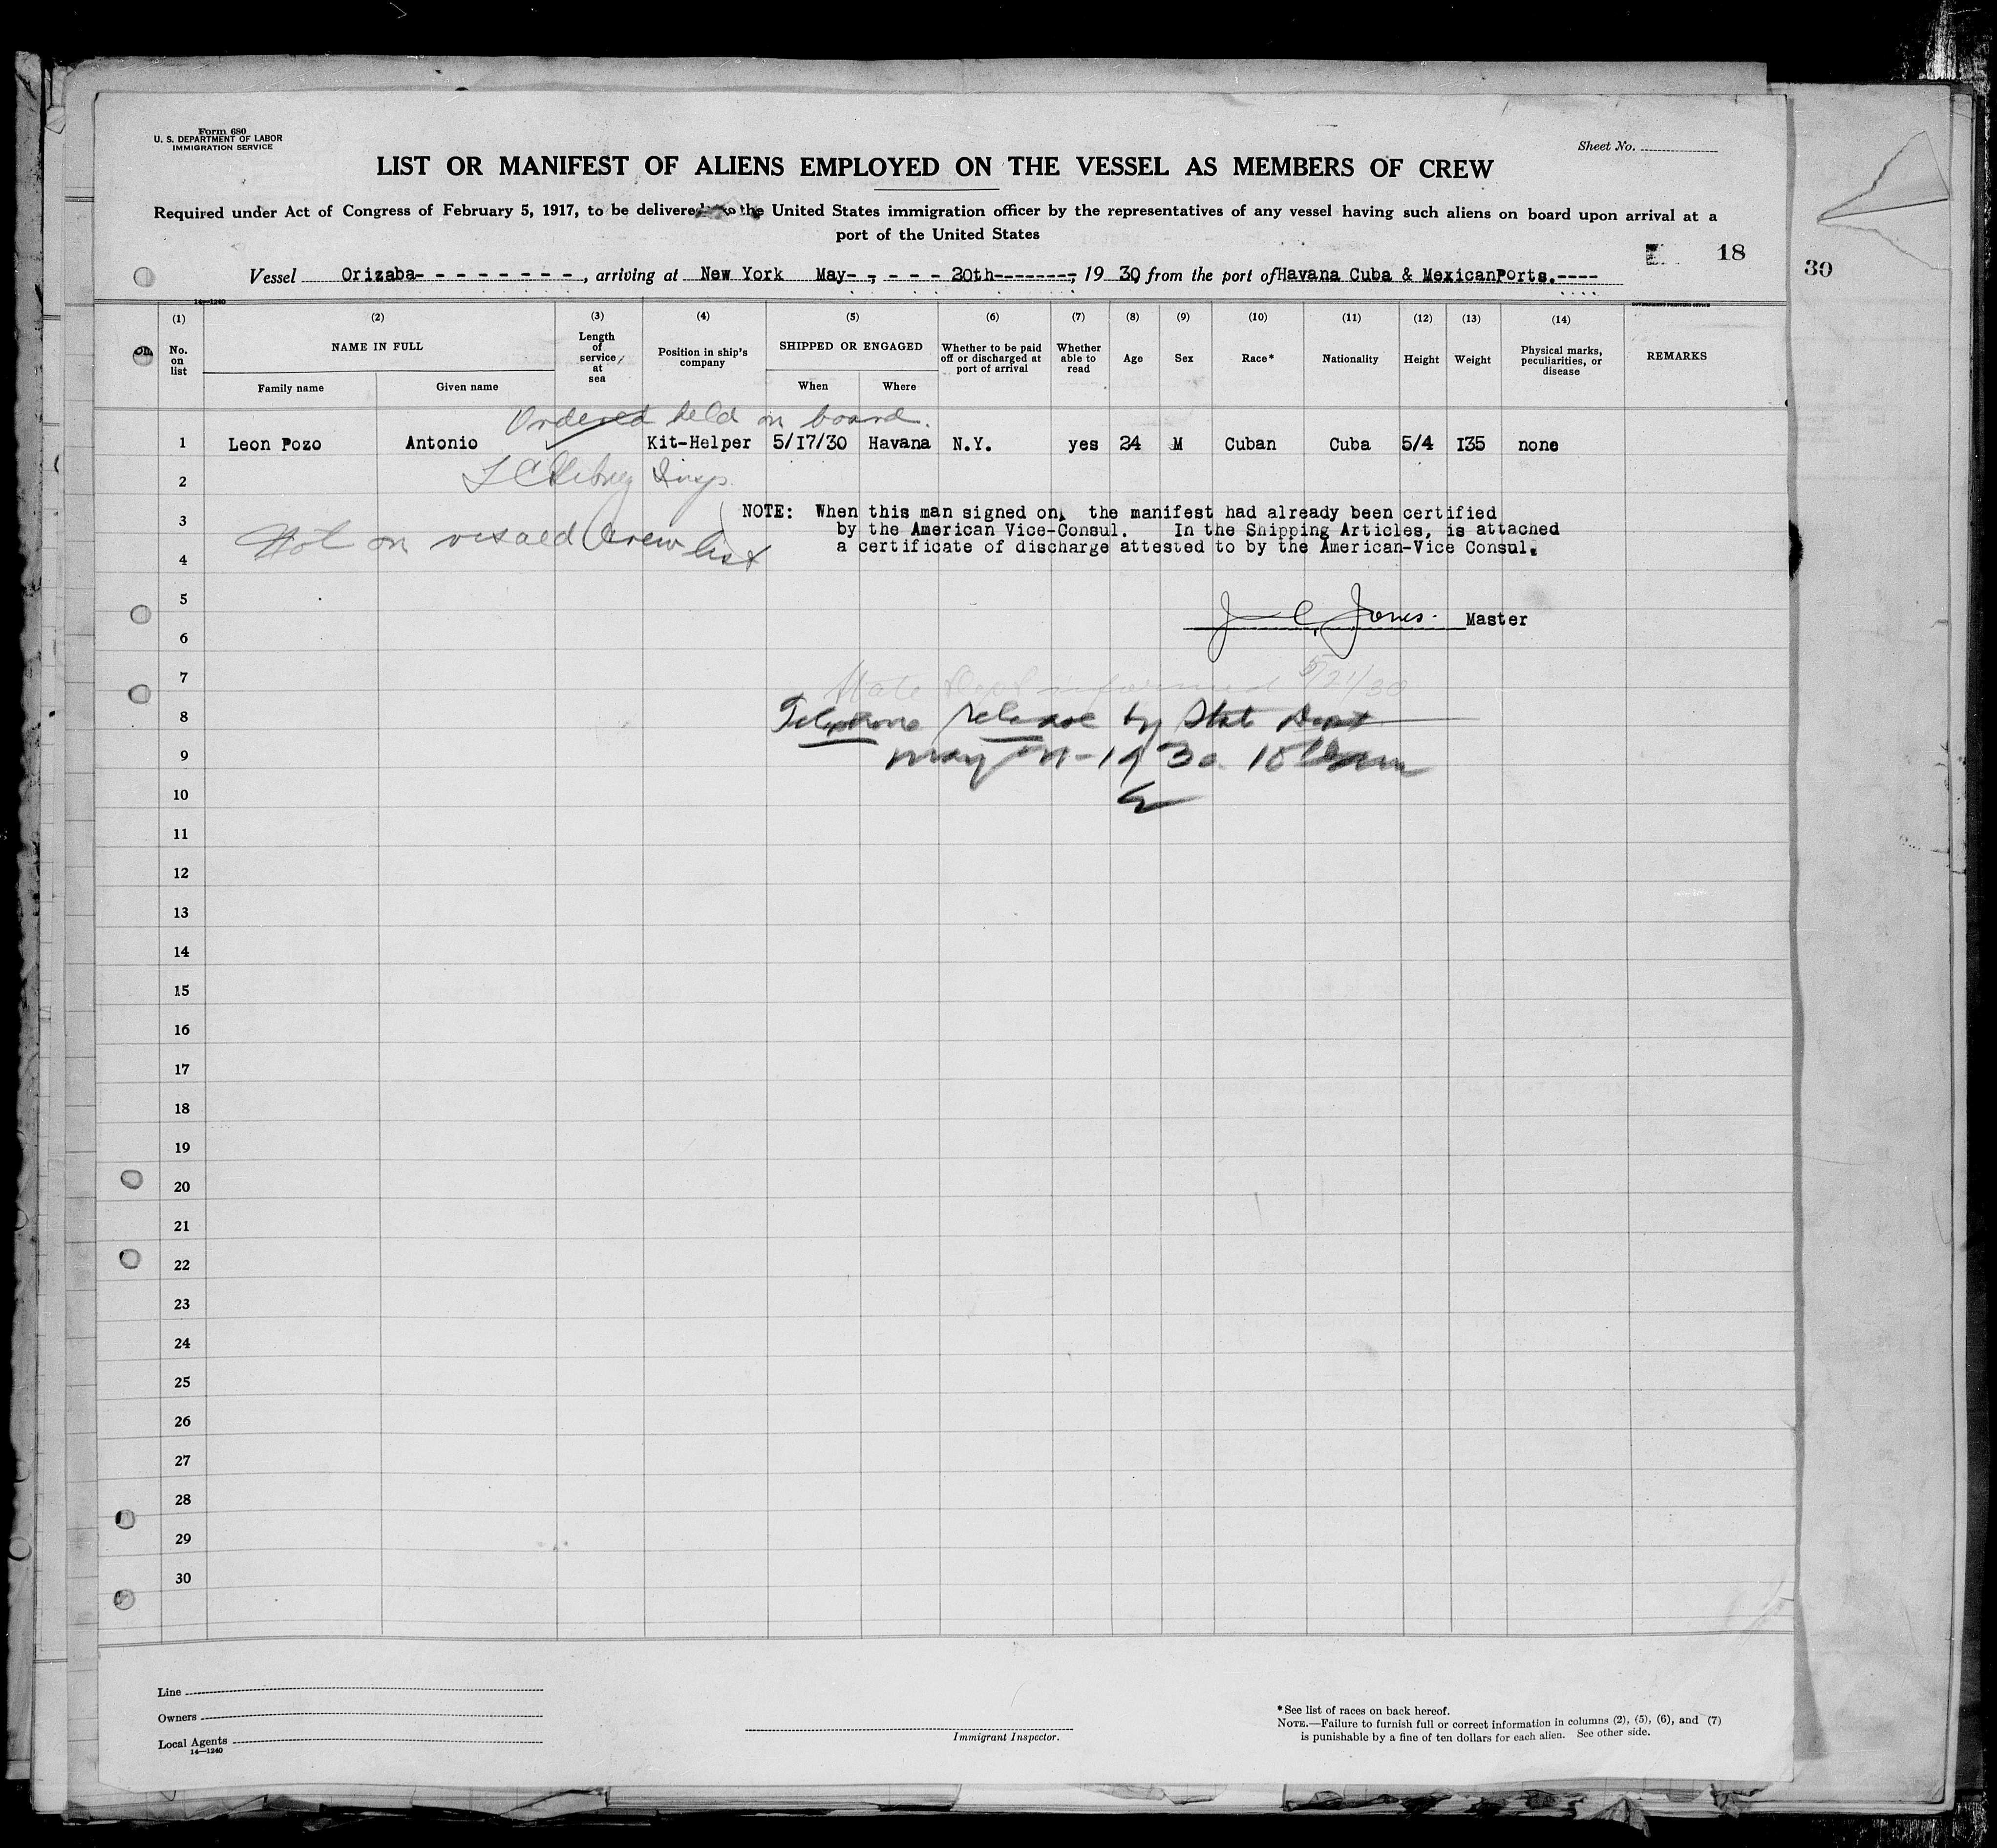 Form 680
U. S. DEPARTMENT OF LABOR
IMMIGRATION SERVICE
Sheet No.
LIST OR MANIFEST OF ALIENS EMPLOYED ON THE VESSEL AS MEMBERS OF CREW
Required under Act of Congress of February 5, 1917, to be delivered to the United States immigration officer by the representatives of any vessel having such aliens on board upon arrival at a
port of the United States
18
30
Vessel Orizaba- - - - - - - - -, arriving at New York May- , - - - - 20th--------, 19 30, from the port of Havana Cuba & Mexican Ports.----
14—1240
GOVERNMENT PRINTING OFFICE
(1) (2) (3) (4) (5) (6) (7) (8) (9) (10) (11) (12) (13) (14)
No. on list NAME IN FULL Length of service at sea Position in ship's company SHIPPED OR ENGAGED Whether to be paid off or discharged at port of arrival Whether able to read Age Sex Race* Nationality Height Weight Physical marks, peculiarities, or disease REMARKS
Family name Given name When Where
Ordered held on board.
1 Leon Pozo Antonio Kit-Helper 5/17/30 Havana N.Y. yes 24 M Cuban Cuba 5/4 135 none
2 Insp.
NOTE: When this man signed on, the manifest had already been certified
3 by the American Vice-Consul. In the Shipping Articles, is attached
Not on visaed Crew list a certificate of discharge attested to by the American-Vice Consul.
4
5
J C Jones. Master
6
7 State Dept informed 5/21/30
8 Telephone release by Stat Dept
9 May 1930 10
10
11
12
13
14
15
16
17
18
19
20
21
22
23
24
25
26
27
28
29
30
Line
Owners
Local Agents
14—1240
Immigrant Inspector.
*See list of races on back hereof.
NOTE.—Failure to furnish full or correct information in columns (2), (5), (6), and (7)
is punishable by a fine of ten dollars for each alien. See other side.